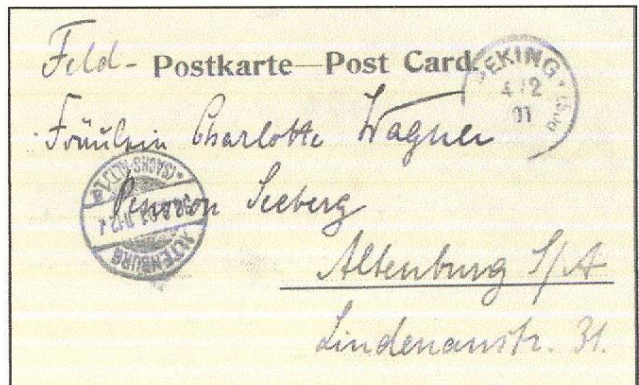 Feld- Postkarte—Post Card.
PEKING
4/2
01
Fräulein Charlotte Wagner
Pension Seeberg
ALTENBURG
Altenburg S/A
Lindenaustr. 31.